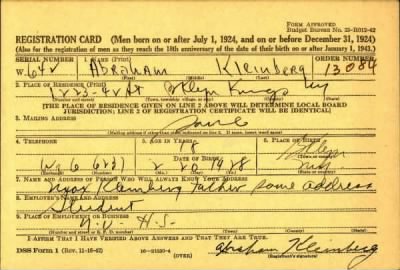 FORM APPROVED
Budget Bureau No. 33-R012-42
REGISTRATION CARD (Men born on or after July 1, 1924, and on or before December 31, 1924)
(Also for the registration of men as they reach the 18th anniversary of the date of their birth on or after January 1, 1943.)
SERIAL NUMBER 1. NAME (Print) ORDER NUMBER
W 642 ABRAHAM Kleinberg 13084
(First) (Middle) (Last)
2. PLACE OF RESIDENCE (Print)
1223-42 St Bklyn Kings NY
(Number and street) (Town, township, village, or city) (County) (State)
[THE PLACE OF RESIDENCE GIVEN ON LINE 2 ABOVE WILL DETERMINE LOCAL BOARD
JURISDICTION; LINE 2 OF REGISTRATION CERTIFICATE WILL BE IDENTICAL]
3. MAILING ADDRESS
Same
4. TELEPHONE 5. AGE IN YEARS 6. PLACE OF BIRTH
18 Bklyn
DATE OF BIRTH
NY
7. NAME AND ADDRESS OF PERSON WHO WILL ALWAYS KNOW YOUR ADDRESS
Max Kleinberg Father same address
8. EMPLOYER'S NAME AND ADDRESS
Student
9. PLACE OF EMPLOYMENT OR BUSINESS
H.S.
I AFFIRM THAT I HAVE VERIFIED ABOVE ANSWERS AND THAT THEY ARE TRUE.
DSS Form 1 (Rev. 11-16-42) (OVER)
Abraham Kleinberg
(Registrant's signature)